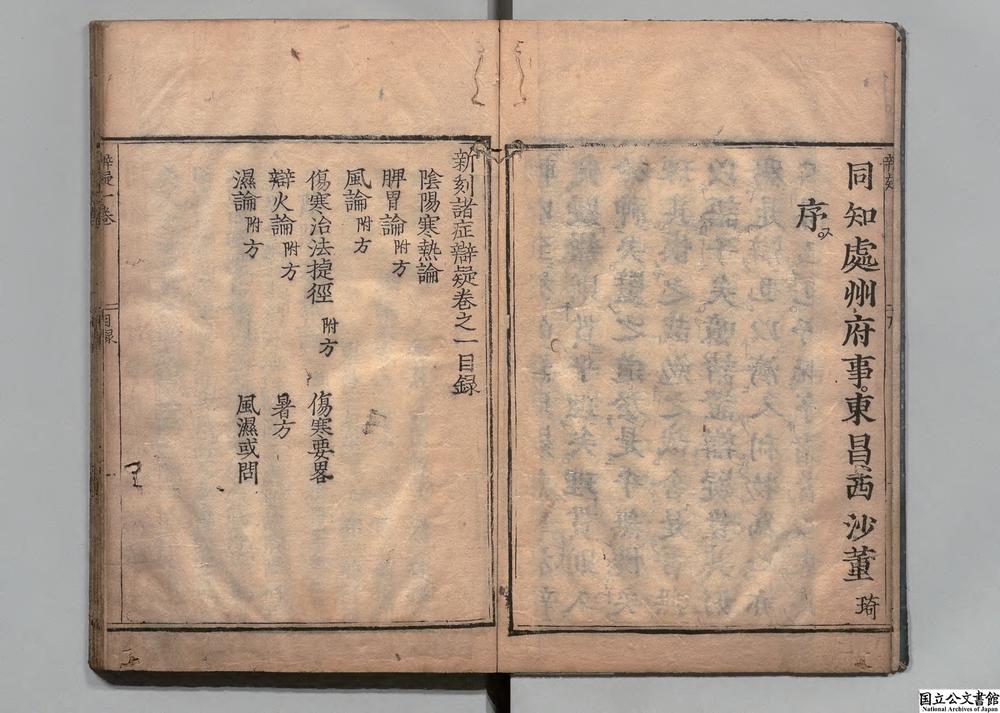 同知處州府事東昌西沙董琦
序
新刻諸症辯疑卷之一目録
陰陽寒熱論
脾胃論附方
風論附方
傷寒治法㨗徑 附方 傷寒要畧
辯火論附方 暑方
濕論附方 風濕或問
辯疑一卷
目録
国立公文書館
National Archives of Japan